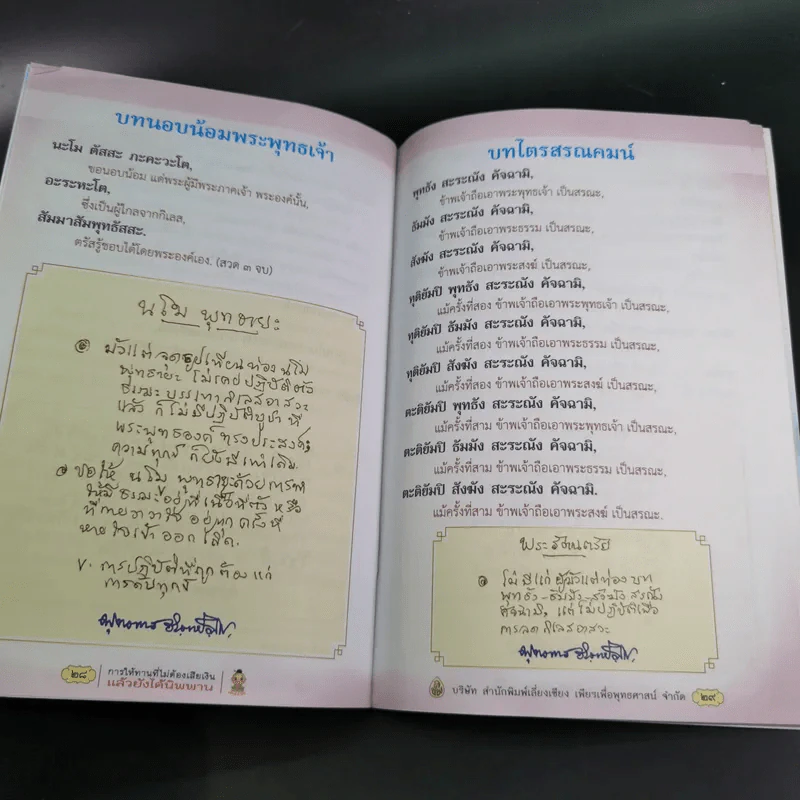 บทนอบน้อมพระพุทธเจ้า
นะโม ตัสสะ ภะคะวะโต,
ขอนอบน้อม แด่พระผู้มีพระภาคเจ้า พระองค์นั้น,
อะระหะโต,
ซึ่งเป็นผู้ไกลจากกิเลส,
สัมมาสัมพุทธัสสะ.
ตรัสรู้ชอบได้โดยพระองค์เอง. (สวด ๓ จบ)
นโม พุทธายะ
มัวแต่ จุดธูปเทียนท่อง นโม
พุทธายะ ไม่เคยปฏิบัติตัว
ธรรมะ บรรเทากิเลสอาสวะ
แล้ว ก็ไม่มีปฏิบัติบูชา ที่
พระพุทธองค์ ทรงประสงค์;
ความทุกข์ ก็ยังมีเท่าเดิม.
ขอให้ นโม พุทธายะด้วยการทำ
ให้มีธรรมะอยู่ที่เนื้อที่ตัว หรือ
ที่กายวาจาใจ อยู่ทุกครั้งที่
หายใจเข้าออก เถิด.
การปฏิบัติที่ถูกต้อง แก่
การดับทุกข์
๒๘
การให้ทานที่ไม่ต้องเสียเงิน
แล้วยังได้นิพพาน
บทไตรสรณคมน์
พุทธัง สะระณัง คัจฉามิ,
ข้าพเจ้าถือเอาพระพุทธเจ้า เป็นสรณะ,
ธัมมัง สะระณัง คัจฉามิ,
ข้าพเจ้าถือเอาพระธรรม เป็นสรณะ,
สังฆัง สะระณัง คัจฉามิ,
ข้าพเจ้าถือเอาพระสงฆ์ เป็นสรณะ,
ทุติยัมปิ พุทธัง สะระณัง คัจฉามิ,
แม้ครั้งที่สอง ข้าพเจ้าถือเอาพระพุทธเจ้า เป็นสรณะ,
ทุติยัมปิ ธัมมัง สะระณัง คัจฉามิ,
แม้ครั้งที่สอง ข้าพเจ้าถือเอาพระธรรม เป็นสรณะ,
ทุติยัมปิ สังฆัง สะระณัง คัจฉามิ,
แม้ครั้งที่สอง ข้าพเจ้าถือเอาพระสงฆ์ เป็นสรณะ,
ตะติยัมปิ พุทธัง สะระณัง คัจฉามิ,
แม้ครั้งที่สาม ข้าพเจ้าถือเอาพระพุทธเจ้า เป็นสรณะ,
ตะติยัมปิ ธัมมัง สะระณัง คัจฉามิ,
แม้ครั้งที่สาม ข้าพเจ้าถือเอาพระธรรม เป็นสรณะ,
ตะติยัมปิ สังฆัง สะระณัง คัจฉามิ.
แม้ครั้งที่สาม ข้าพเจ้าถือเอาพระสงฆ์ เป็นสรณะ.
พระรัตนตรัย
ไม่มีแก่ ผู้มัวแต่ท่อง บท
พุทธัง-ธัมมัง-สังฆัง สรณัง
คัจฉามิ, แต่ ไม่ปฏิบัติเพื่อ
การลด กิเลสอาสวะ
บริษัท สำนักพิมพ์เลี่ยงเชียง เพียรเพื่อพุทธศาสน์ จำกัด
๒๙